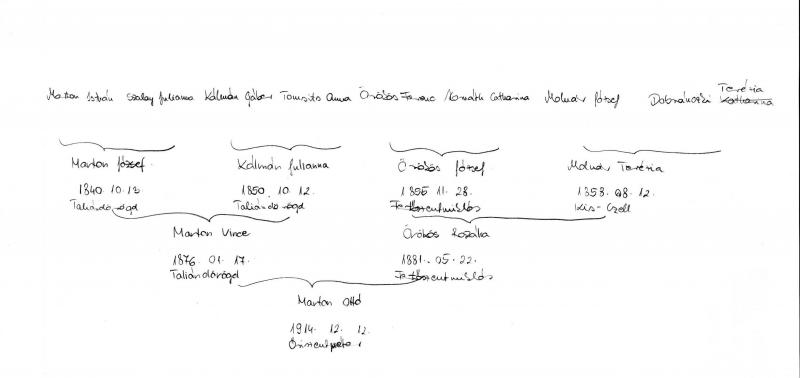 Terézia
Marton István Szalay Julianna Kálmán Gábor Tomsits Anna Örökös Ferenc Horváth Catharina Molnár József Dobránczki Katharina
Marton József Kálmán Julianna Örökös József Molnár Terézia
1840. 10. 12. 1850. 10. 12. 1855. 11. 28. 1858. 08. 12.
Taliándörögd Taliándörögd Kis-Czell
Marton Vince Örökös Rozália
1876. 01. 17. 1881. 05. 22.
Taliándörögd
Marton Ottó
1914. 12. 12.